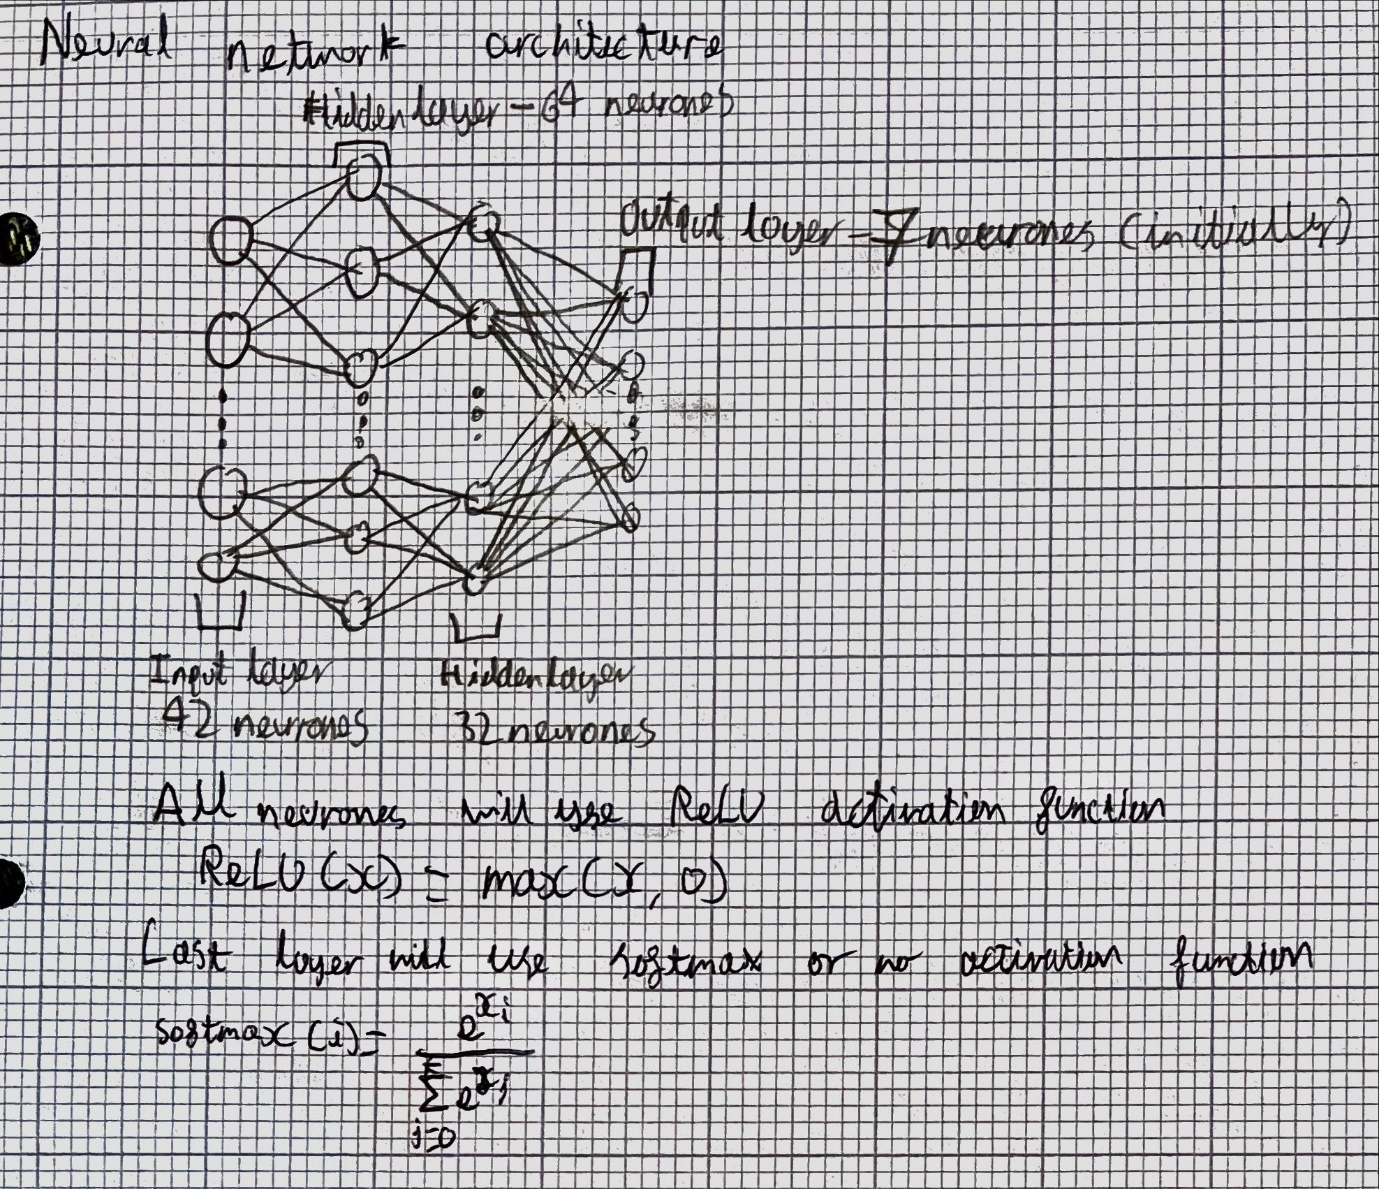 Neural network architecture
Hidden layer - 64 neurones
Output layer - 7 neurones (initially)
Input layer
42 neurones
Hidden layer
32 neurones
All neurones will use ReLU activation function
ReLU(x) = max(x, 0)
Last layer will use softmax or no activation function
softmax(i) = e^{x_i}
Σ e^{x_j}
j=0